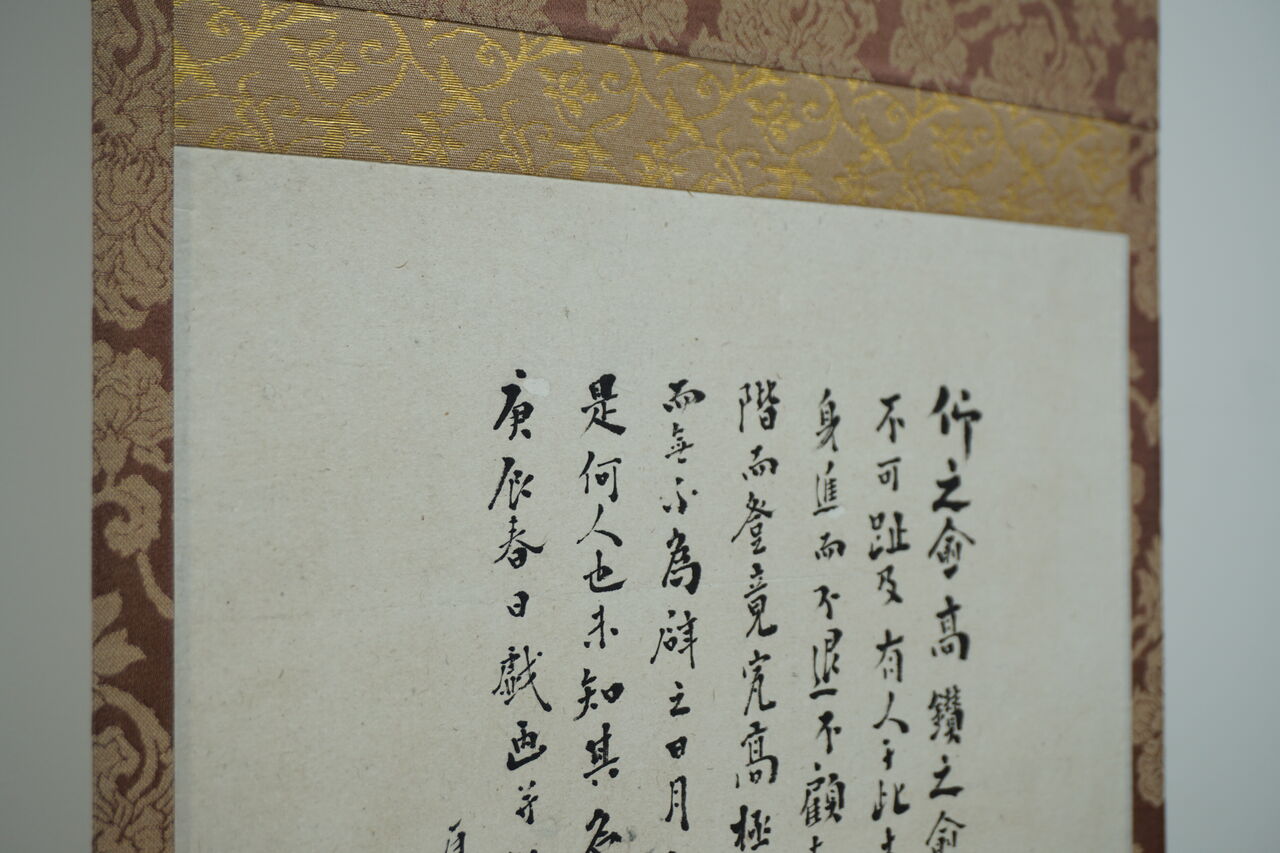 仰之俞高鑽之俞
不可趾及有人于此
身進而不退不顧
階而登竟究高極
而無不為辟之日月
是何人也未知其名
庚辰春日戲画并